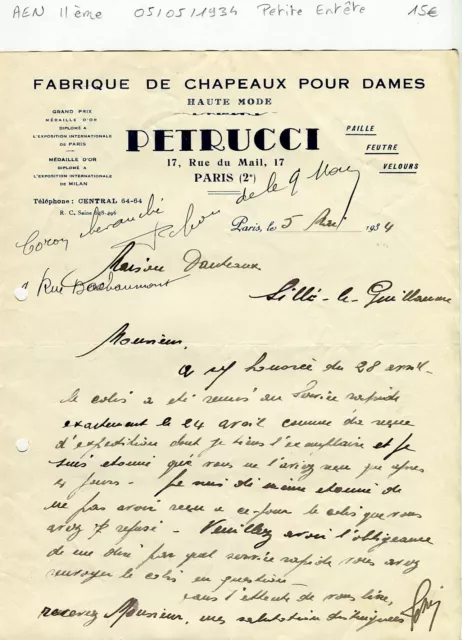 AEN 11ème 05/05/1934 Petite Entête 15€
FABRIQUE DE CHAPEAUX POUR DAMES
HAUTE MODE
GRAND PRIX
MÉDAILLE D'OR
DIPLOMÉ A
L'EXPOSITION INTERNATIONALE
DE PARIS
MÉDAILLE D'OR
DIPLOMÉ A
L'EXPOSITION INTERNATIONALE
DE MILAN
PETRUCCI
17, Rue du Mail, 17
PARIS (2e)
PAILLE
FEUTRE
VELOURS
Téléphone : CENTRAL 64-64
R. C. Seine 698-296
de le 9 May
Paris, le 5 Mai 1934
Maison
1 Rue Bachaumont
Sillé-le-Guillaume
Monsieur,
honorée du 28 avril
le colis a été remis au service rapide
exactement le 24 avril comme
d'expédition dont je tiens l'exemplaire et je
suis étonné que vous ne l'aviez reçu que après
4 jours - Je suis de même étonné de
ne pas avoir reçu a ce-jour le colis que vous
avez refusé - Veuillez avoir l'obligeance
de me dire par quel service rapide vous avez
envoyer le colis en question
dans l'attente de vous lire,
recevez Monsieur, mes salutations distinguées